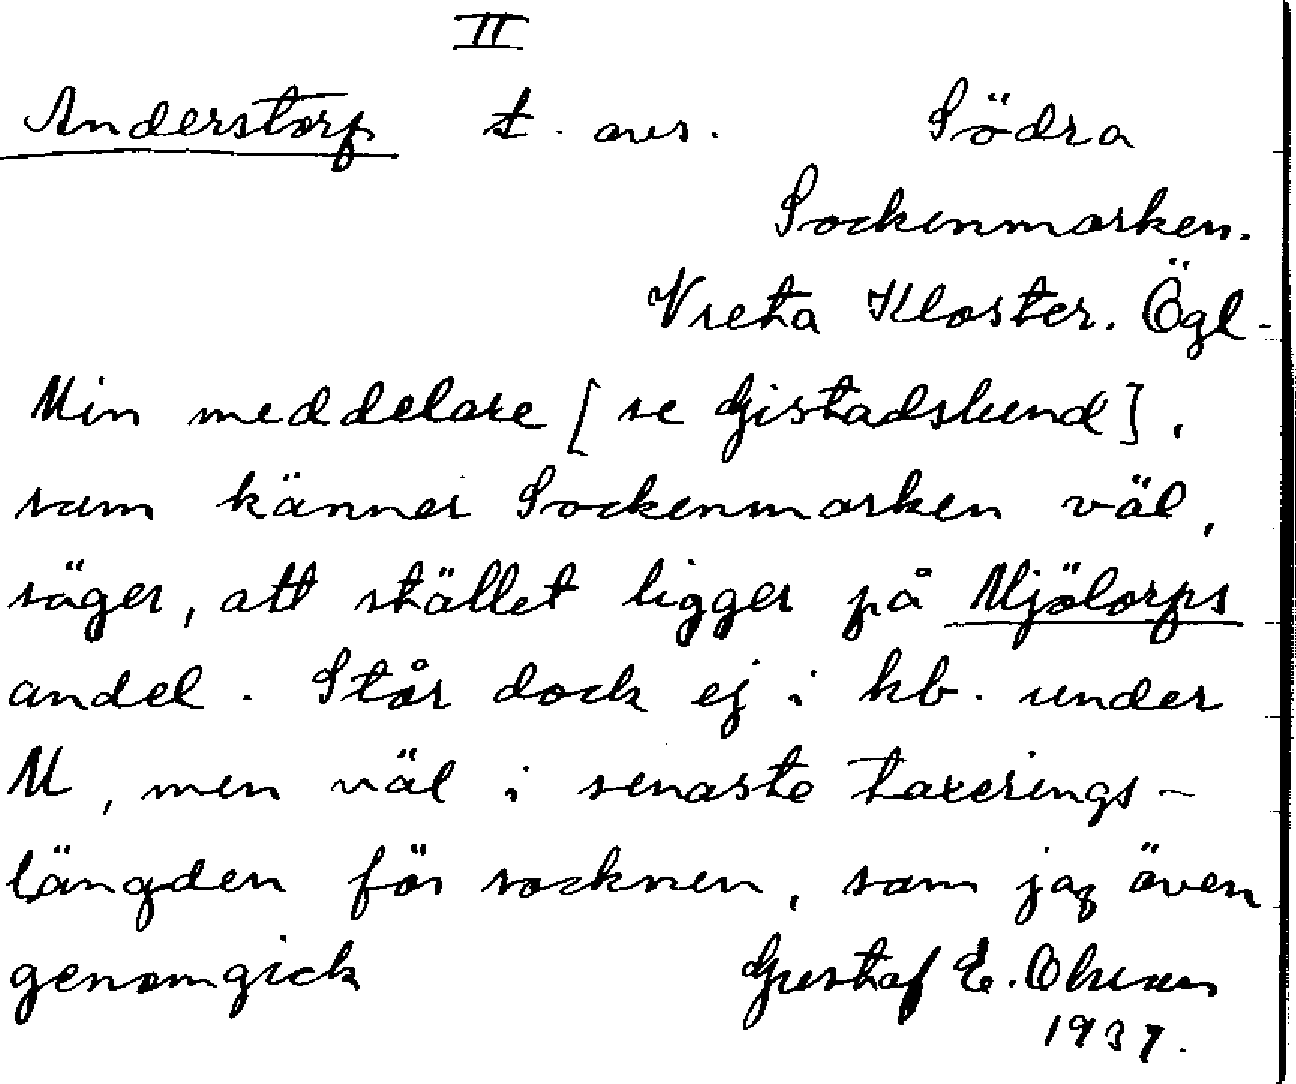 II
Anderstorp t. avs. Södra
Sockenmarken.
Vreta Kloster. Ögl.
Min meddelare [se Gistadslund],
som känner Sockenmarken väl,
säger, att stället ligger på Mjölorps
andel. Står dock ej i kb. under
M, men väl i senaste taxerings-
längden för socknen, som jag även
genomgick Gustaf E. Olsson
1937.